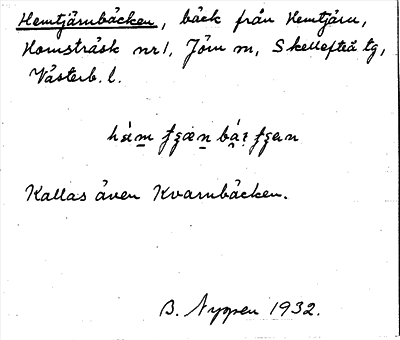 Hemtjärnbäcken, bäck från Hemtjärn,
Homsträsk nr 1, Jörn sn, Skellefteå tg,
Västerb. l.
Kallas även Kvarnbäcken.
B. Nygren 1932.